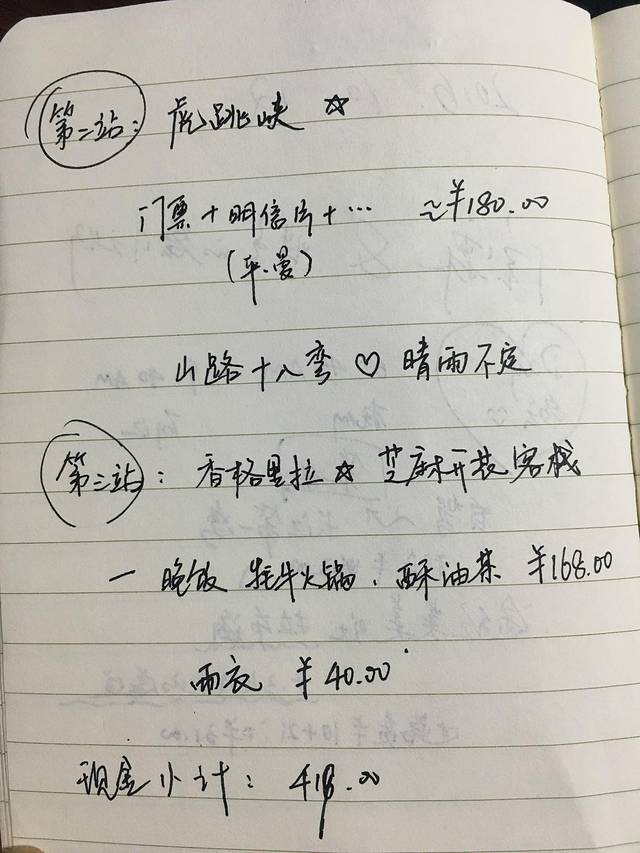 第二站：虎跳峡 ☆
门票+明信片+… ≈¥180.00
山路十八弯 ♡ 晴雨不定
第三站：香格里拉 ☆ 芝麻开装客栈
一 晚饭 牦牛火锅、酥油茶 ¥168.00
雨衣 ¥40.00
现金小计：418.00